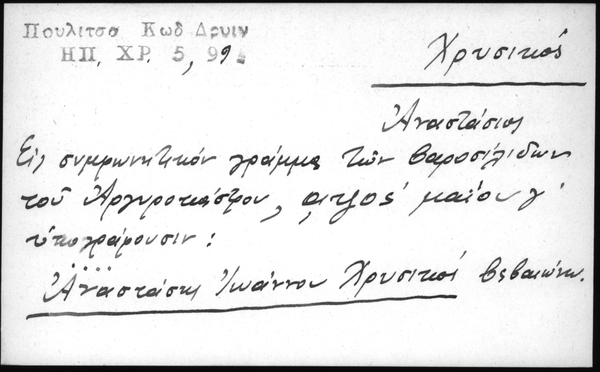 Πουλιτσα Κωδ Δρυιν
ΗΠ. ΧΡ. 5, 99
Χρυσικός
Ἀναστάσιος
Εἰς συμφωνητικόν γράμμα τῶν βαροσιλίδων
τοῦ Ἀργυροκάστρου, μαΐου γ'
ὑπογράφουσιν:
Ἀναστάσης Ἰωάννου Χρυσικός βεβαιώνω.